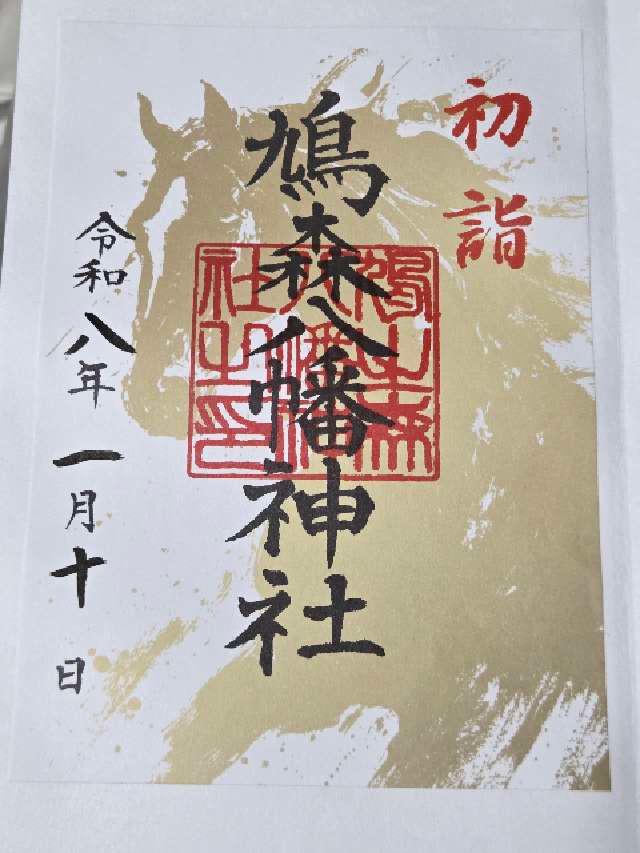 初詣
鳩森八幡神社
鳩之森
八幡神
社之印
令和八年一月十日